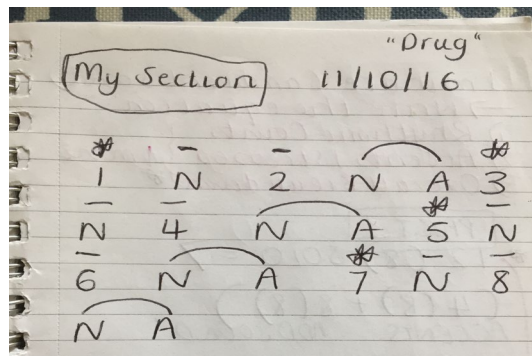 "Drug"
My Section 11/10/16
1 N 2 N A 3
N 4 N A 5 N
6 N A 7 N 8
N A